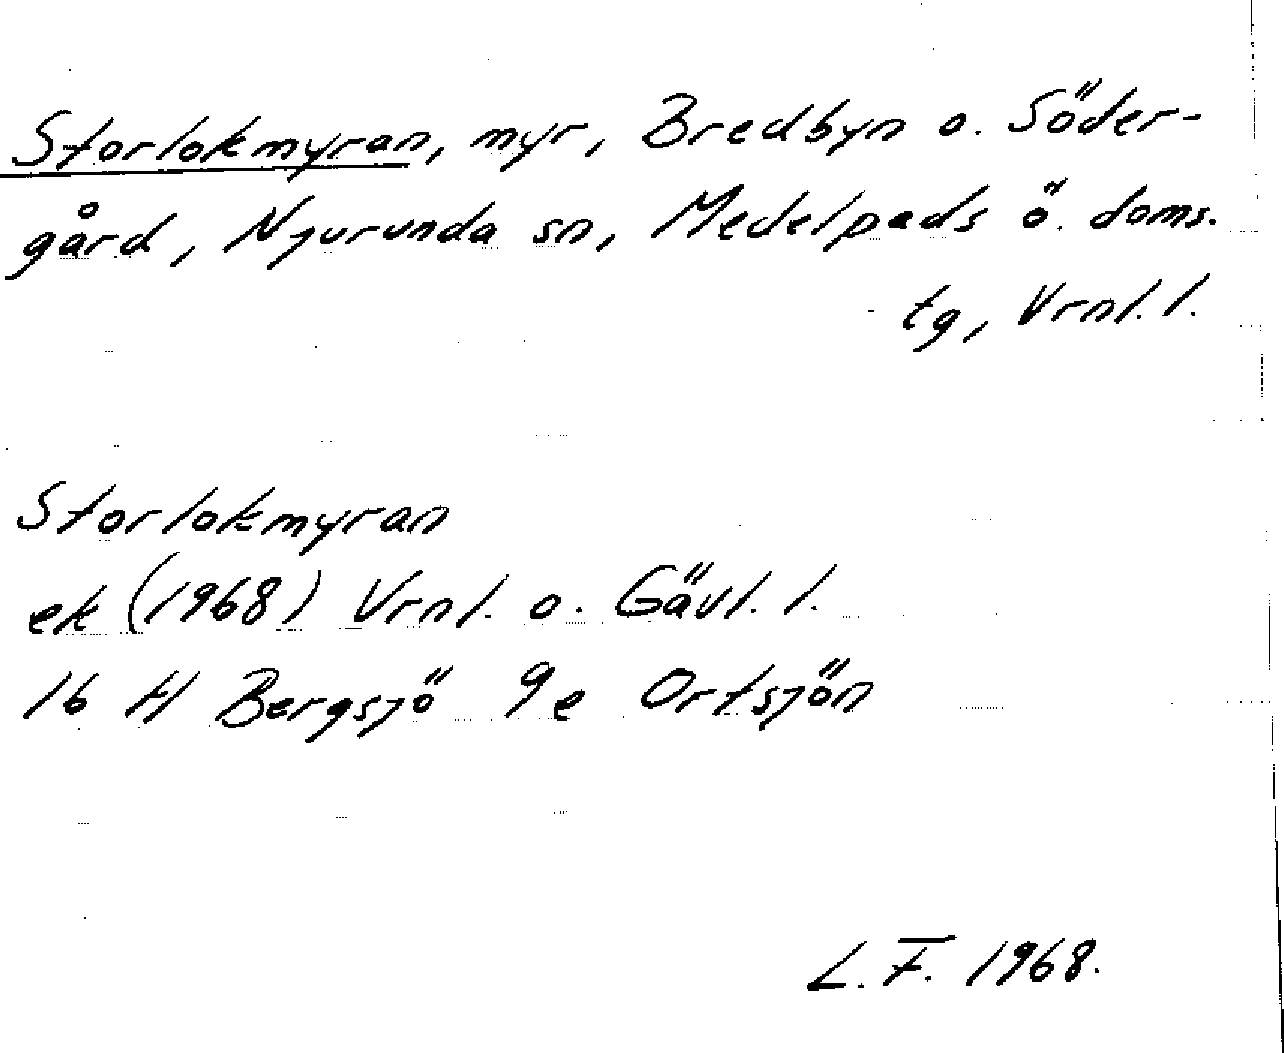 Storlokmyran, myr, Bredbyn o. Söder-
gård, Njurunda sn, Medelpads ö. doms.
tg, Vrnl. l.
Storlokmyran
ek (1968) Vrnl. o. Gävl. l.
16 H Bergsjö 9e Ortsjön
L. F. 1968.